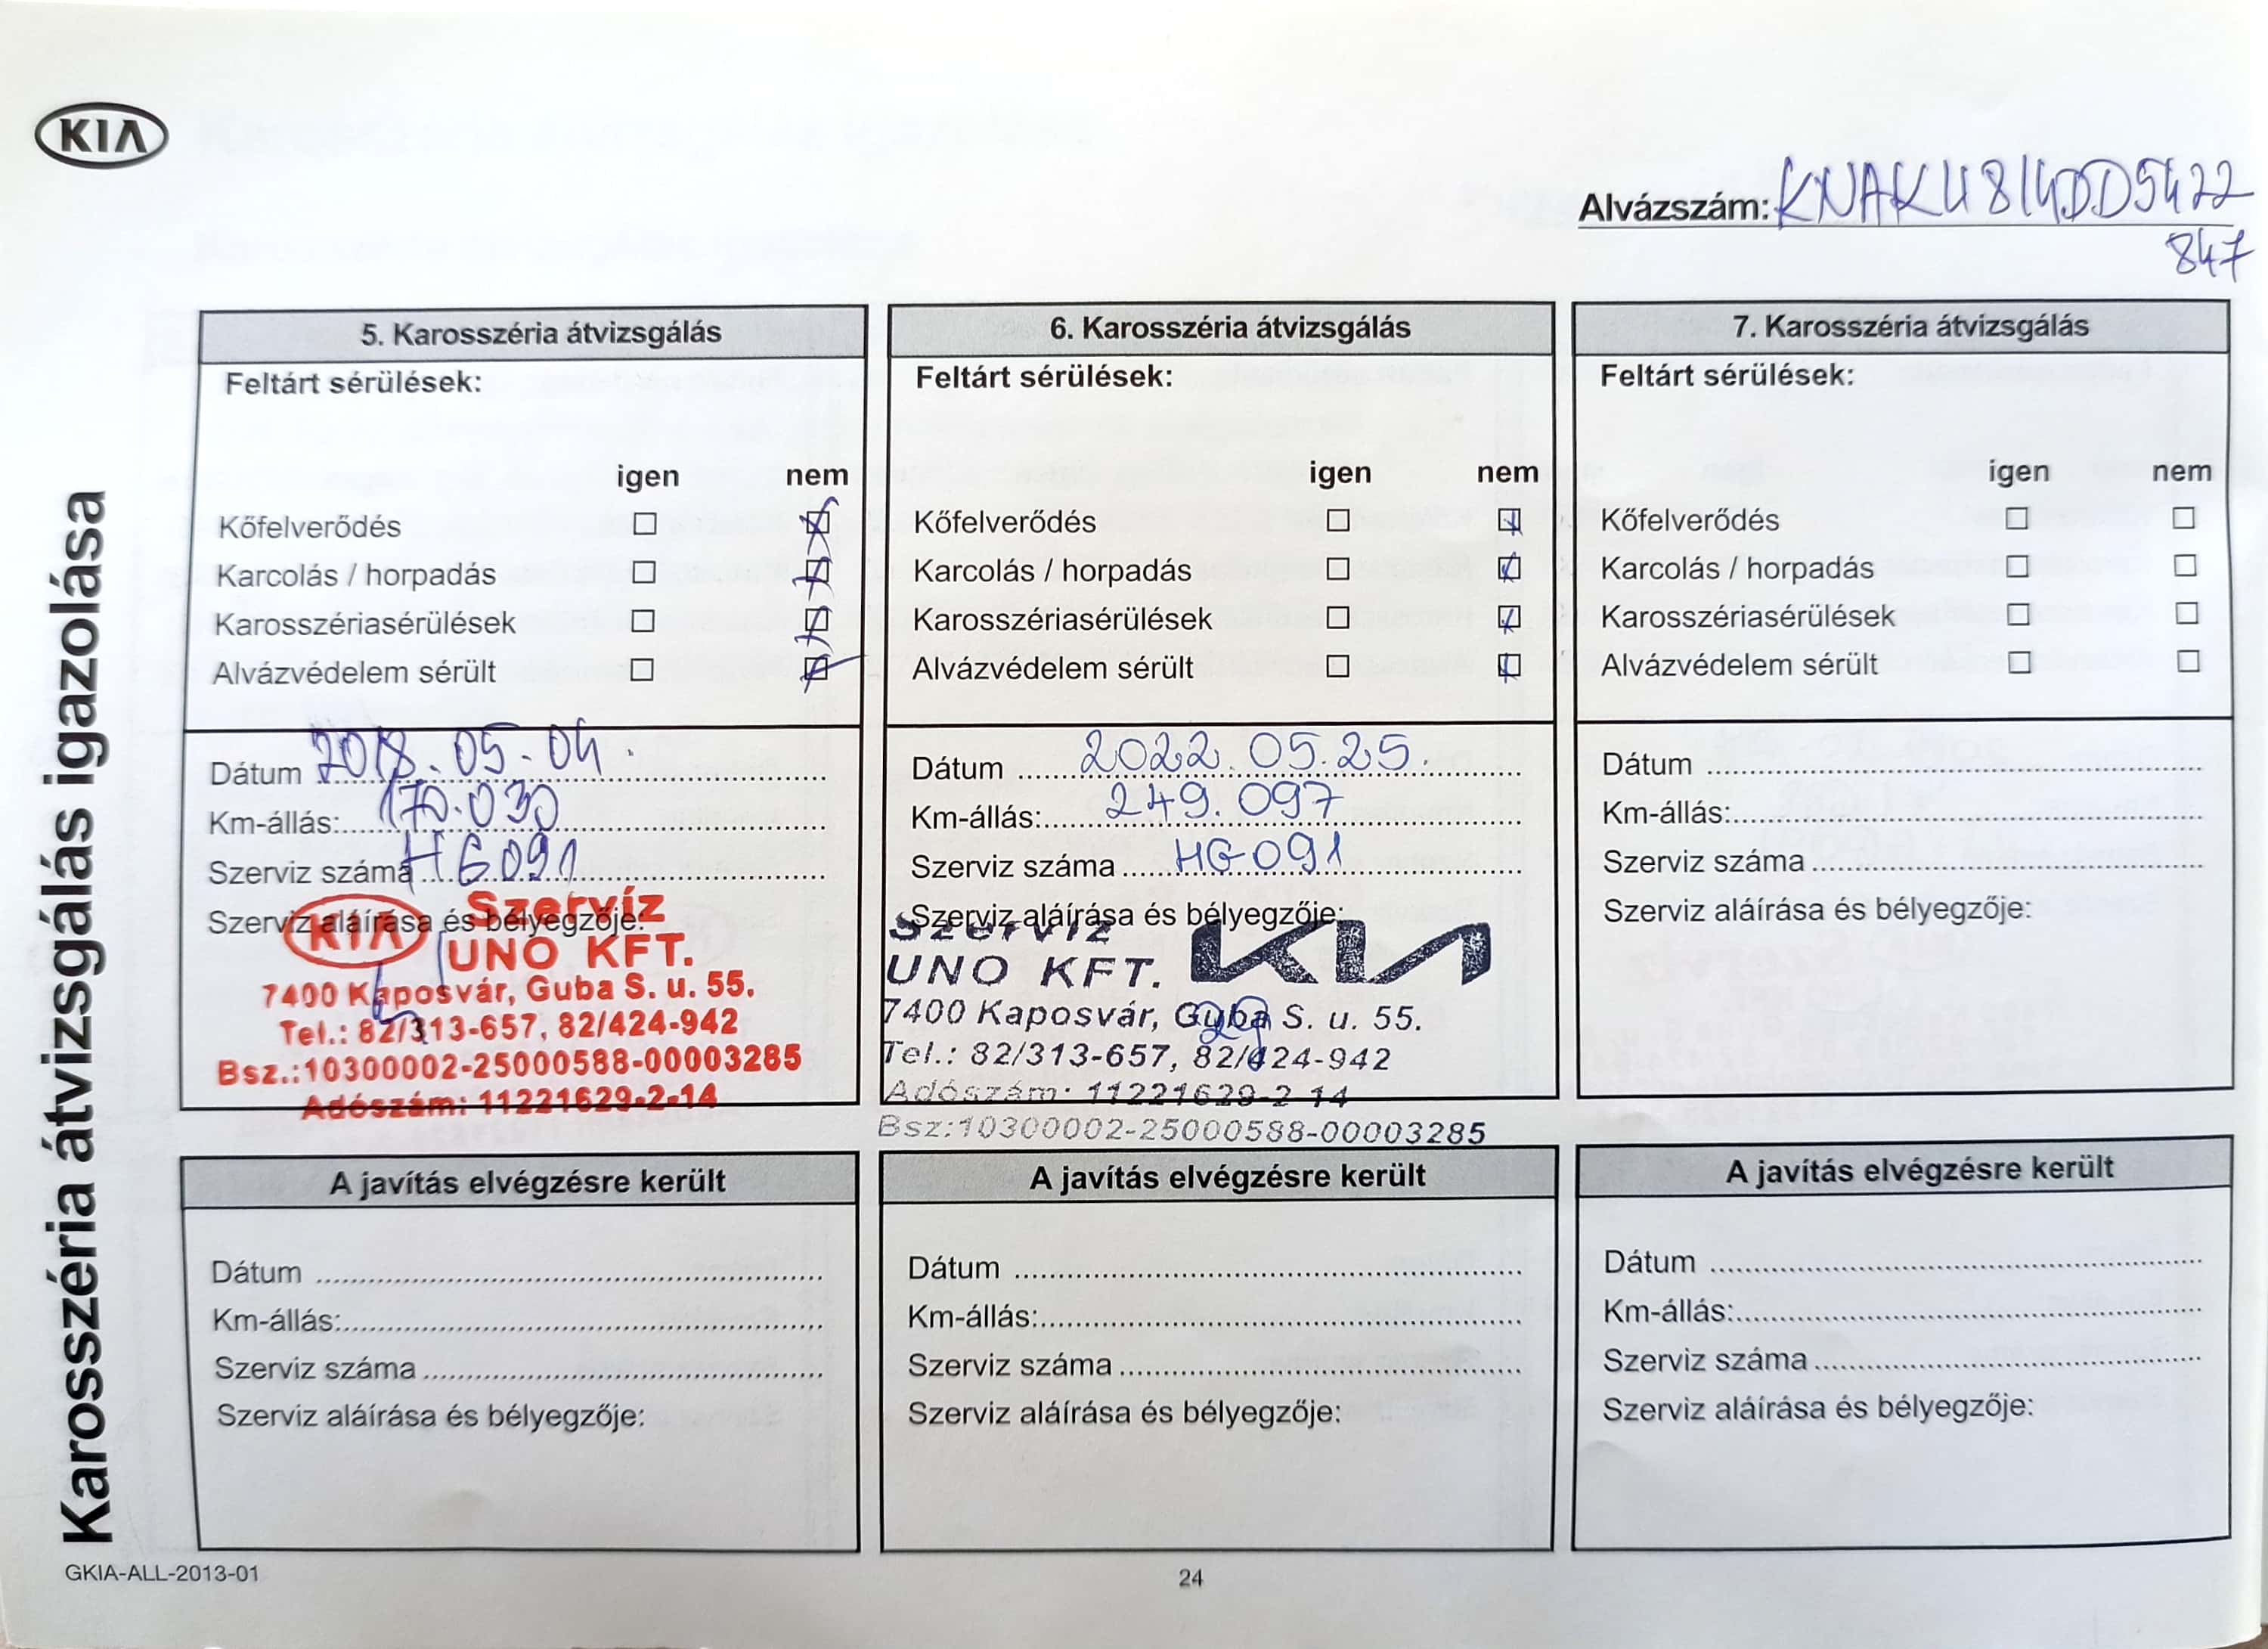 KIA
Alvázszám: KNAKU814DD5422
847
Karosszéria átvizsgálás igazolása
5. Karosszéria átvizsgálás
Feltárt sérülések:
igen nem
Kőfelverődés
Karcolás / horpadás
Karosszériasérülések
Alvázvédelem sérült
Dátum 2018.05.04.
Km-állás: 170.030
Szerviz száma HG091
Szerviz aláírása és bélyegzője:
KIA Szervíz
UNO KFT.
7400 Kaposvár, Guba S. u. 55.
Tel.: 82/313-657, 82/424-942
Bsz.:10300002-25000588-00003285
Adószám: 11221629-2-14
6. Karosszéria átvizsgálás
Feltárt sérülések:
igen nem
Kőfelverődés
Karcolás / horpadás
Karosszériasérülések
Alvázvédelem sérült
Dátum 2022.05.25.
Km-állás: 249.097
Szerviz száma HG091
Szerviz aláírása és bélyegzője:
Szervíz KIA
UNO KFT.
7400 Kaposvár, Guba S. u. 55.
Tel.: 82/313-657, 82/424-942
Adószám: 11221629-2-14
Bsz:10300002-25000588-00003285
7. Karosszéria átvizsgálás
Feltárt sérülések:
igen nem
Kőfelverődés
Karcolás / horpadás
Karosszériasérülések
Alvázvédelem sérült
Dátum
Km-állás:
Szerviz száma
Szerviz aláírása és bélyegzője:
A javítás elvégzésre került
Dátum
Km-állás:
Szerviz száma
Szerviz aláírása és bélyegzője:
A javítás elvégzésre került
Dátum
Km-állás:
Szerviz száma
Szerviz aláírása és bélyegzője:
A javítás elvégzésre került
Dátum
Km-állás:
Szerviz száma
Szerviz aláírása és bélyegzője:
GKIA-ALL-2013-01
24